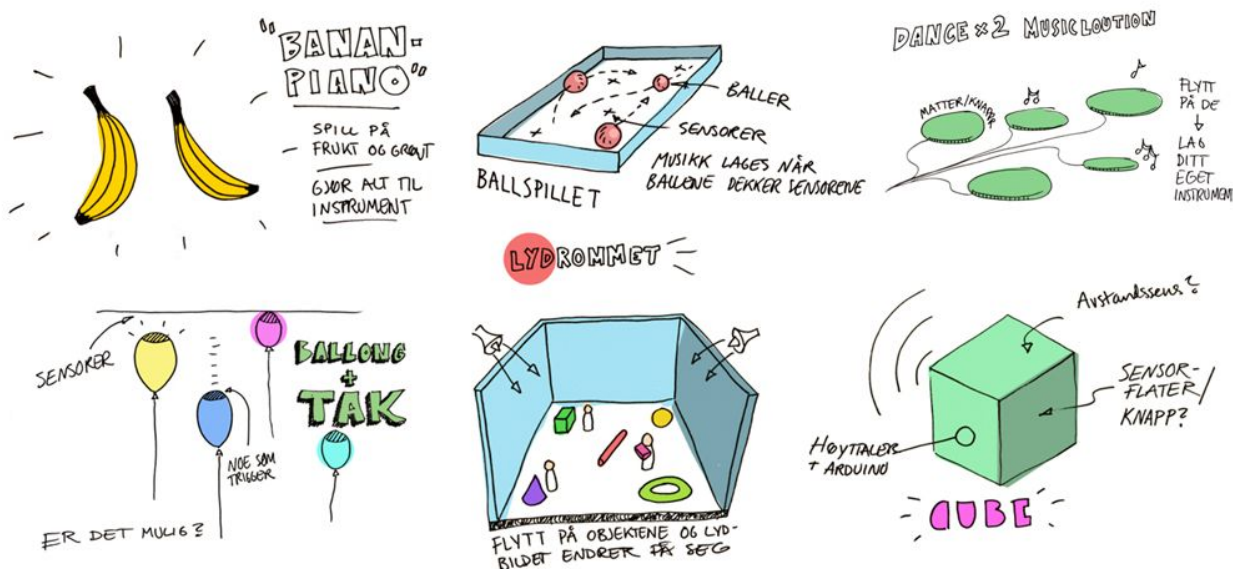 "BANAN-
PIANO"
SPILL PÅ
FRUKT OG GRØNT
GJØR ALT TIL
INSTRUMENT
BALLER
SENSORER
BALLSPILLET
MUSIKK LAGES NÅR
BALLENE DEKKER SENSORENE
DANCE x 2 MUSICLOUTION
MATTER/KNAPPER
FLYTT
PÅ DE
LAG
DITT
EGET
INSTRUMENT
SENSORER
BALLONG
+
TAK
NOE SOM
TRIGGER
ER DET MULIG?
LYDROMMET
FLYTT PÅ OBJEKTENE OG LYD-
BILDET ENDRER PÅ SEG
Avstandssens?
SENSOR-
FLATER/
KNAPP?
HØYTTALER
+ ARDUINO
CUBE